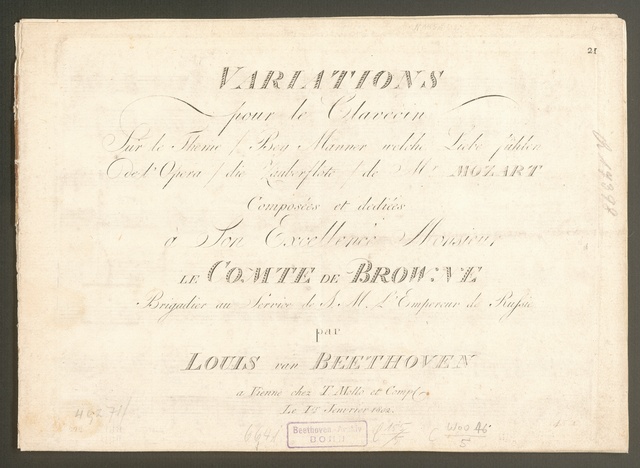 21
VARIATIONS
pour le Clavecin
Sur le Thême / Bey Männer welche Liebe fühlen
de l'Opera / die Zauberflöte / de Mr. MOZART
Composées et dédiées
à Son Excellence Monsieur
LE COMTE DE BROWNE
Brigadier au Service de S. M. L'Empereur de Russie
par
LOUIS van BEETHOVEN
a Vienne chez T. Mollo et Comp.
Le 1r Janvier 1802.
Beethoven-Archiv
BONN
WoO 46
5